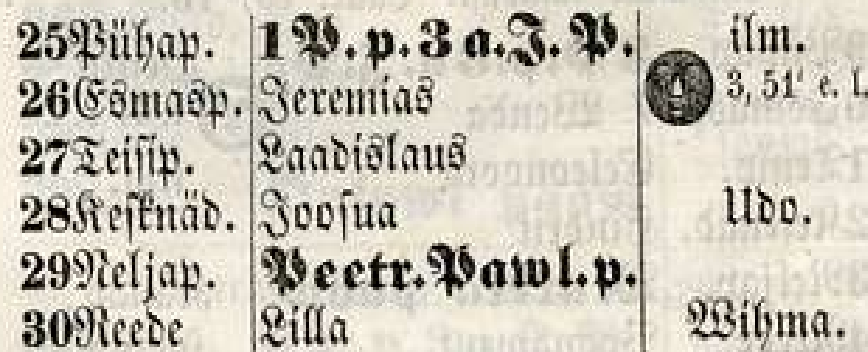 25 Pühap. 1 P. p. 3 a. J. P. ilm.
26 Esmasp. Jeremias 3, 51' e. l.
27 Teisip. Laadislaus
28 Kesknäd. Joosua Udo.
29 Neljap. Peetr. Pawl. p.
30 Reede Lilla Wihma.